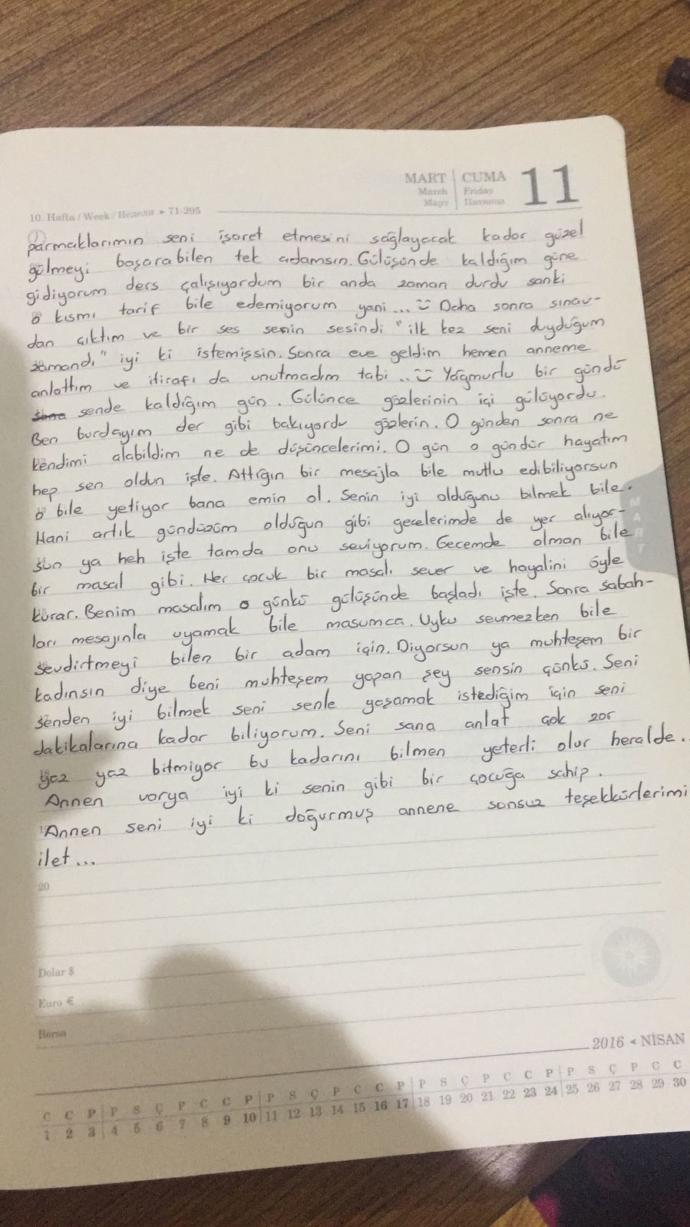 MART CUMA 11
March Friday
Mapт Пятница
10. Hafta / Week / Неделя ▸ 71-295
parmaklarımın seni işaret etmesini sağlayacak kadar güzel
gülmeyi başarabilen tek adamsın. Gülüşünde kaldığım güne
gidiyorum ders çalışıyordum bir anda zaman durdu sanki
o kısmı tarif bile edemiyorum yani... Daha sonra sınav-
dan çıktım ve bir ses senin sesindi "ilk kez seni duyduğum
zamandı" iyi ki istemişsin. Sonra eve geldim hemen anneme
anlattım ve itirafı da unutmadım tabi.. Yağmurlu bir gündü
sende kaldığım gün. Gülünce gözlerinin içi gülüyordu.
Ben burdayım der gibi bakıyordu gözlerin. O günden sonra ne
kendimi alabildim ne de düşüncelerimi. O gün o gündür hayatım
hep sen oldun işte. Attığın bir mesajla bile mutlu edibiliyorsun
o bile yetiyor bana emin ol. Senin iyi olduğunu bilmek bile.
Hani artık gündüzüm olduğun gibi gecelerimde de yer alıyor-
sun ya heh işte tamda onu seviyorum. Gecemde olman bile
bir masal gibi. Her çocuk bir masalı sever ve hayalini öyle
kurar. Benim masalım o günkü gülüşünde başladı işte. Sonra sabah-
ları mesajınla uyamak bile masumca. Uyku sevmezken bile
sevdirtmeyi bilen bir adam için. Diyorsun ya muhteşem bir
kadınsın diye beni muhteşem yapan şey sensin çünkü. Seni
senden iyi bilmek seni senle yaşamak istediğim için seni
dakikalarına kadar biliyorum. Seni sana anlat çok zor
yaz yaz bitmiyor bu kadarını bilmen yeterli olur heralde.
Annen varya iyi ki senin gibi bir çocuğa sahip.
Annen seni iyi ki doğurmuş annene sonsuz teşekkürlerimi
ilet...
MART
20
Dolar $
Euro €
Borsa
2016 ◂ NİSAN
C C P P S Ç P C C P P S Ç P C C P P S Ç P C C P P S Ç P C C
1 2 3 4 5 6 7 8 9 10 11 12 13 14 15 16 17 18 19 20 21 22 23 24 25 26 27 28 29 30